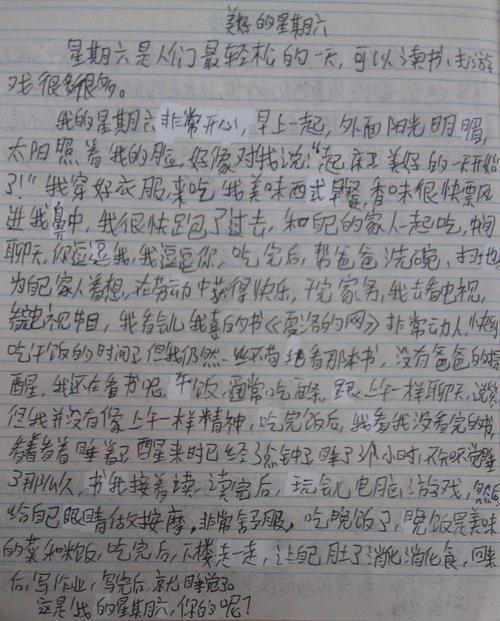 美好的星期六
星期六是人们最轻松的一天,可以读书、去游
戏很多很多。
我的星期六非常开心,早上一起,外面阳光明媚,
太阳照着我的脸,好像对我说:“起床了,美好的一天开始
了!”我穿好衣服,来吃我美味西式早餐,香味很快飘风
进我鼻中,我很快跑了过去,和自己的家人一起吃,中间
聊天,你逗逗我,我逗逗你,吃完后,帮爸爸洗碗、扫地
为自己家人着想,在劳动中获得快乐,干完家务,我去看电视,
电视节目,我看会儿我喜的书《夏洛的网》非常动人,快到
吃午饭的时间了但我仍然一丝不苟地看那本书,没有爸爸的提
醒,我还在看书呢。午饭,通常吃面条,跟上午一样聊天、说笑
但我并没有像上午一样精神,吃完饭后,我看我没看完的书
看着看着睡着了醒来时已经3点钟了睡了3个小时,不知不觉睡
了那么久,书我接着读,读完后,玩会儿电脑游戏,然后
给自己眼睛做按摩,非常舒服,吃晚饭了,晚饭是美味
的菜和米饭,吃完后,下楼走一走,让自己肚子消化消化食,回来
后,写作业,写完后,就睡觉了。
这是我的星期六,你的呢?